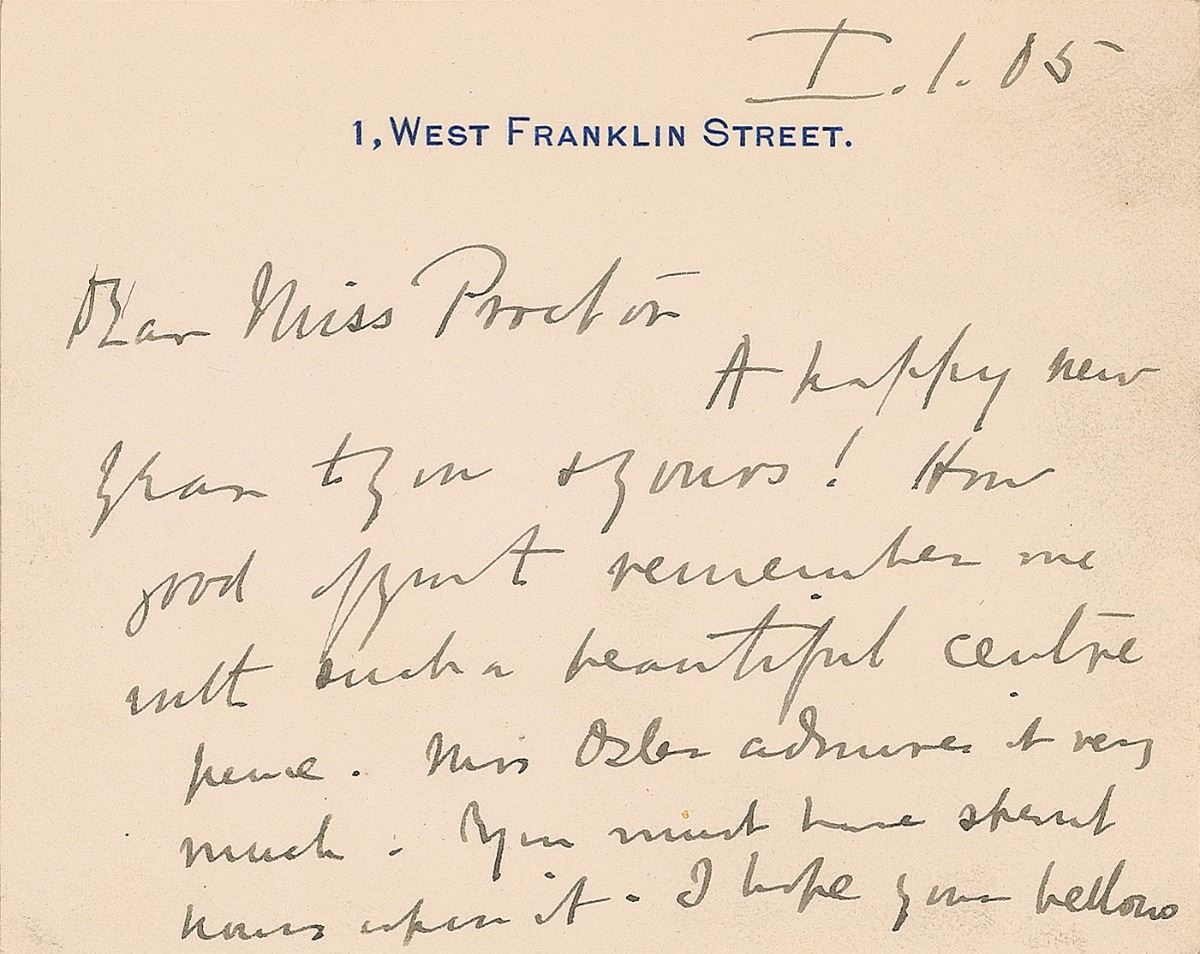 I.1.05
1, WEST FRANKLIN STREET.
Dear Miss Proctor
A happy new
year to you & yours! How
good of you to remember me
with such a beautiful centre
piece. Mrs Osler admires it very
much. You must have spent
hours upon it. I hope your bellows